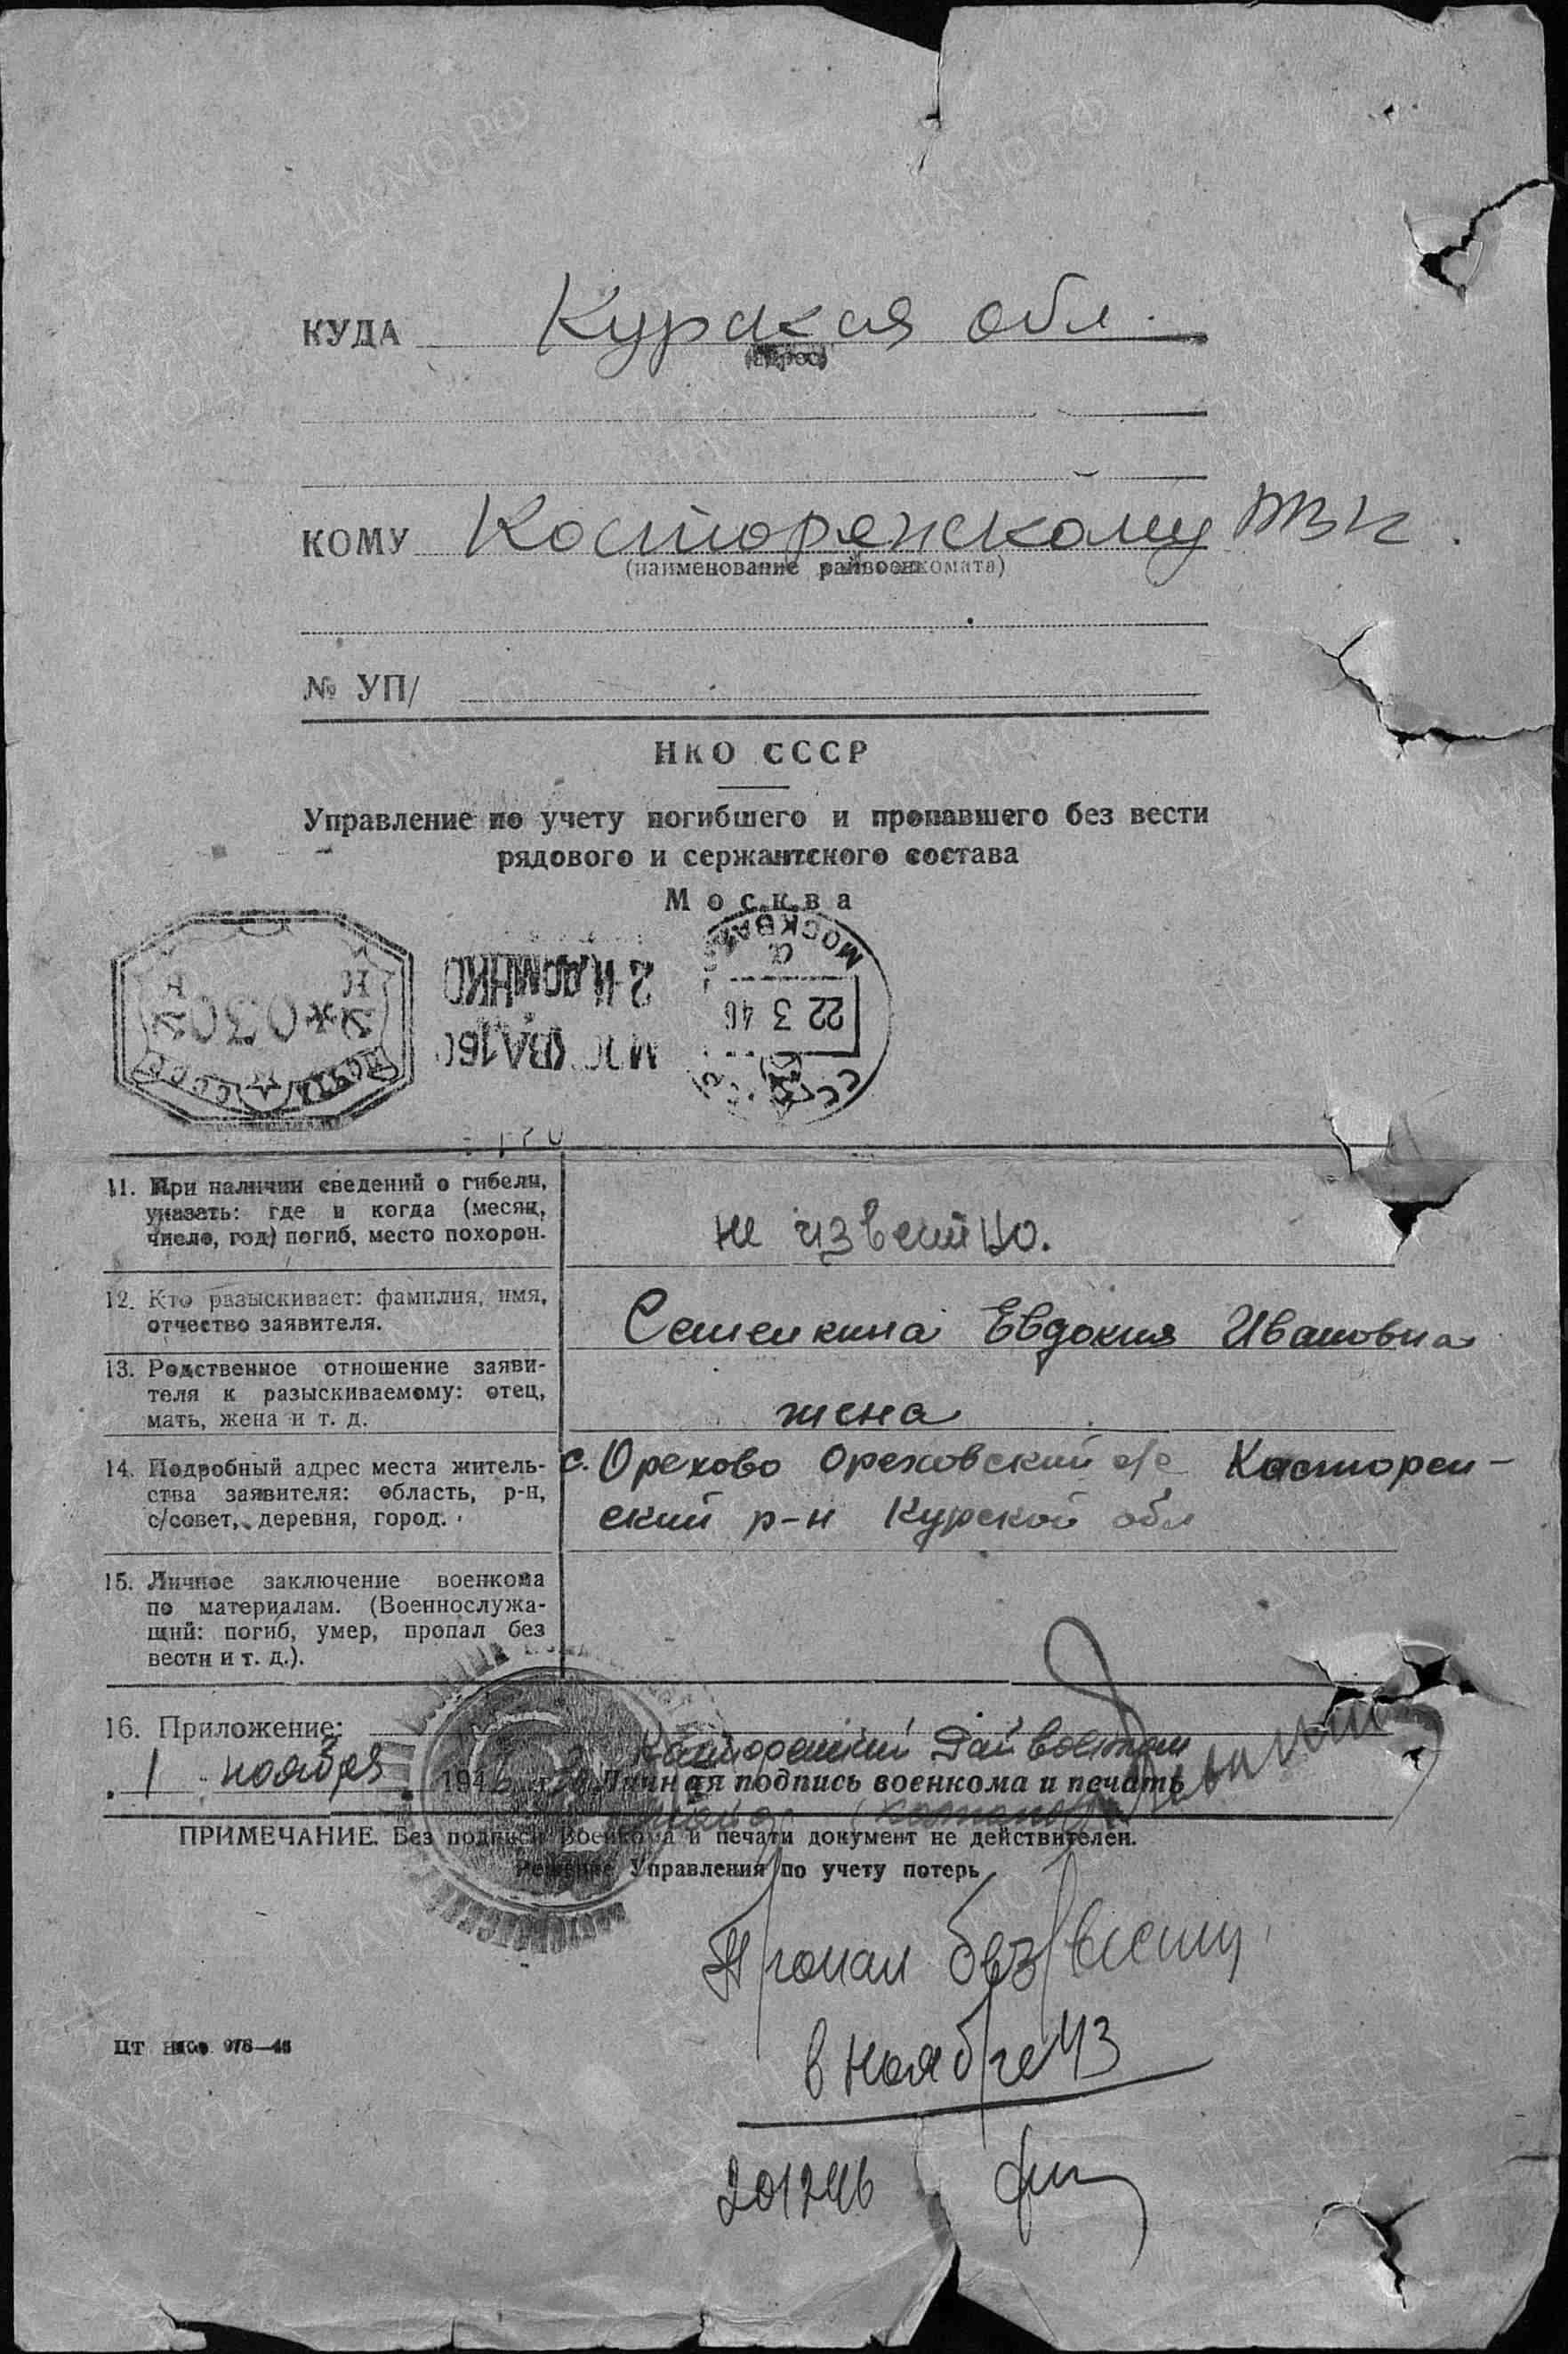 КУДА Курская обл.
(адрес)
КОМУ Касторенскому РВК.
(наименование райвоенкомата)
№ УП/
НКО СССР
Управление по учету погибшего и пропавшего без вести
рядового и сержантского состава
Москва
МОСКВА
22 3 46
СССР
ПОЧТА СССР
11. При наличии сведений о гибели,
указать: где и когда (месяц,
число, год) погиб, место похорон.
не известно.
12. Кто разыскивает: фамилия, имя,
отчество заявителя.
Семенкина Евдокия Ивановна
13. Родственное отношение заяви-
теля к разыскиваемому: отец,
мать, жена и т. д.
жена
14. Подробный адрес места житель-
ства заявителя: область, р-н,
с/совет, деревня, город.
с. Орехово Ореховский с/с Касторен-
ский р-н Курской обл
15. Личное заключение военкома
по материалам. (Военнослужа-
щий: погиб, умер, пропал без
вести и т. д.).
16. Приложение:
Касторенский Райвоенком
1 ноября 1946 г. Личная подпись военкома и печать
ПРИМЕЧАНИЕ. Без подписи военкома и печати документ не действителен.
Решение Управления по учету потерь
Пропал без вести
в ноябре 43
201246